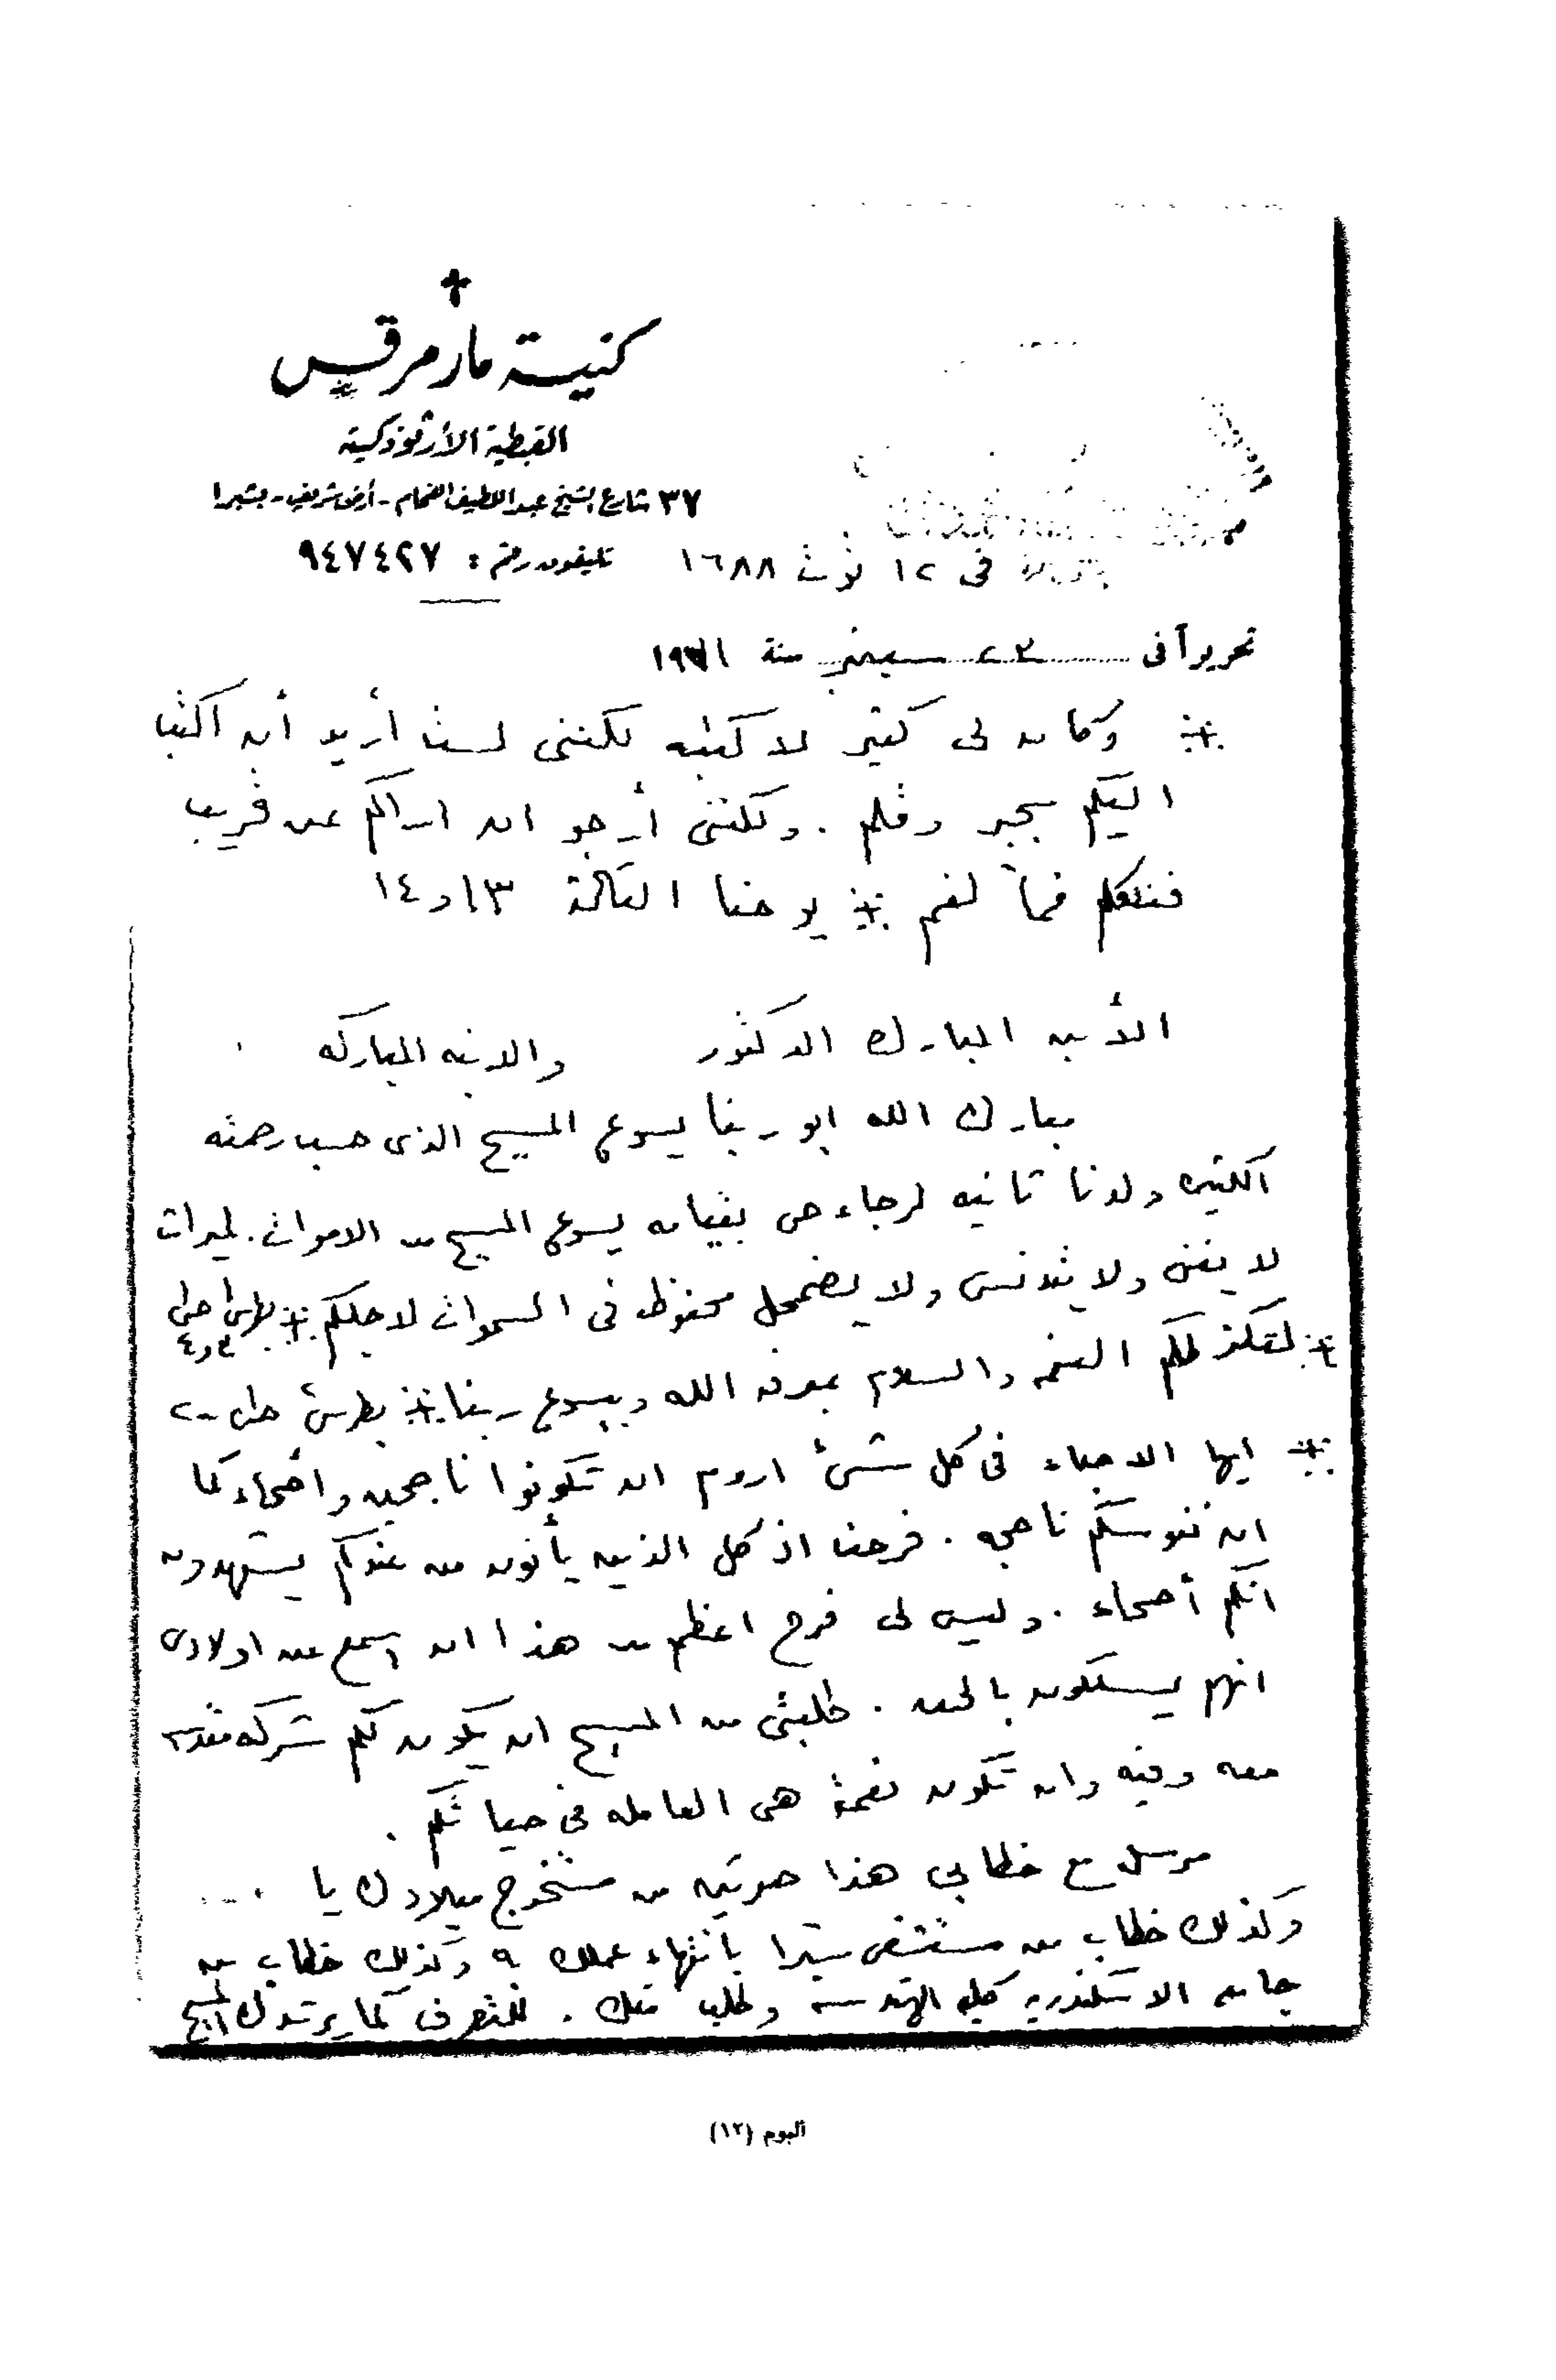 كنيسة مارمرقس
القبطية الأرثوذكسية
٣٧ شارع الشيخ عبد اللطيف الفحام - أرض شريف - بشبرا
تليفون رقم : ٩٤٧٤٢٧
فى ١٢ توت ١٦٨٨
تحريرآ فى ٢٣ سبتمبر سنة ١٩٧١
※ وكان لى كثير لاكتبه لكننى لست أريد أن اكتب
اليكم بحبر وقلم . ولكننى أرجو ان اراكم عن قريب
فنتكلم فماً لفم ※ يوحنا الثالثة ١٣ و ١٤
الأبن المبارك الدكتور والابنه المباركه
مبارك الله ابو ربنا يسوع المسيح الذى حسب رحمته
الكثيره ولدنا ثانيه لرجاء حى بقيامه يسوع المسيح من الاموات . لميراث
لا يفنى ولا يتدنس ولا يضمحل محفوظ فى السموات لاجلكم ※ بطرس ١ ص١
٣و٤
※ لتكثر لكم النعمه والسلام بمعرفة الله وبيسوع ربنا ※ بطرس ص١ - ٢
※ ايها الاحباء فى كل شئ اروم ان تكونوا ناجحين واصحاء كما
ان نفوسكم ناجحه . فرحنا اذ كل الذين يأتون من عندكم يشهدون
انكم أصحاء . وليس لى فرح اعظم من هذا ان اسمع عن اولادى
انهم يسلكون بالحق . طلبتى من المسيح ان يكون لكم شركه مقدسه
معه وفيه وان تكون نعمته هى العامله فى حياتكم .
مرسل مع خطابى هذا صورتين من مستخرج ميلادك يا
وكذلك خطاب من مستشفى شبرا بأنتهاء عملك ٩ وكذلك خطاب من
جامعه الاسكندريه كليه الهندسه وطلب نقلك . للتصرف كما يرشدك المسيح
البوم (١٢)